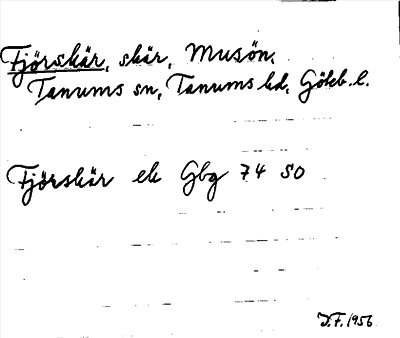 Fjörskär, skär, Musön,
Tanums sn, Tanums hd, Göteb. l.
Fjörskär ek Gbg 74 SO
D.F. 1956